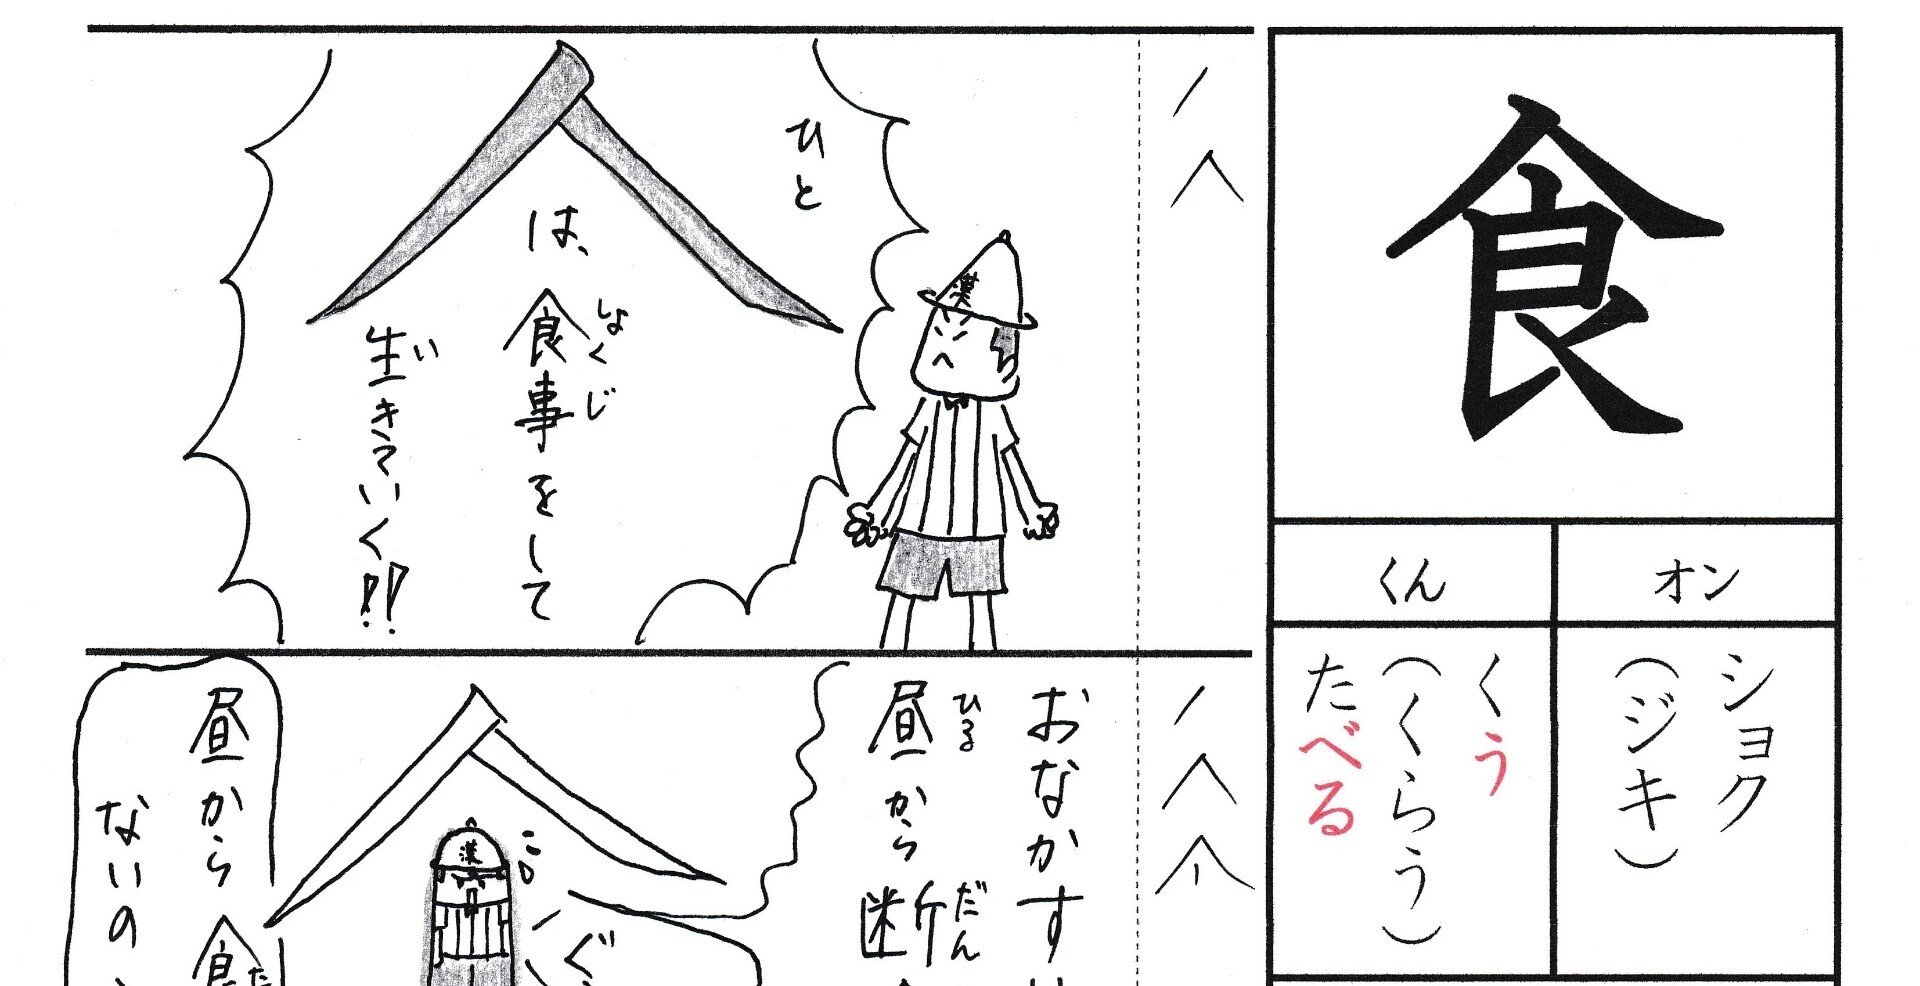 食
オン
くん
ショク
（ジキ）
くう
（くらう）
たべる
ひと
は、食事をして
しょくじ
生きていく!!
い
漢
おなかす
昼から断
ひる
だん
漢
ぐ
昼から食
た
ないの